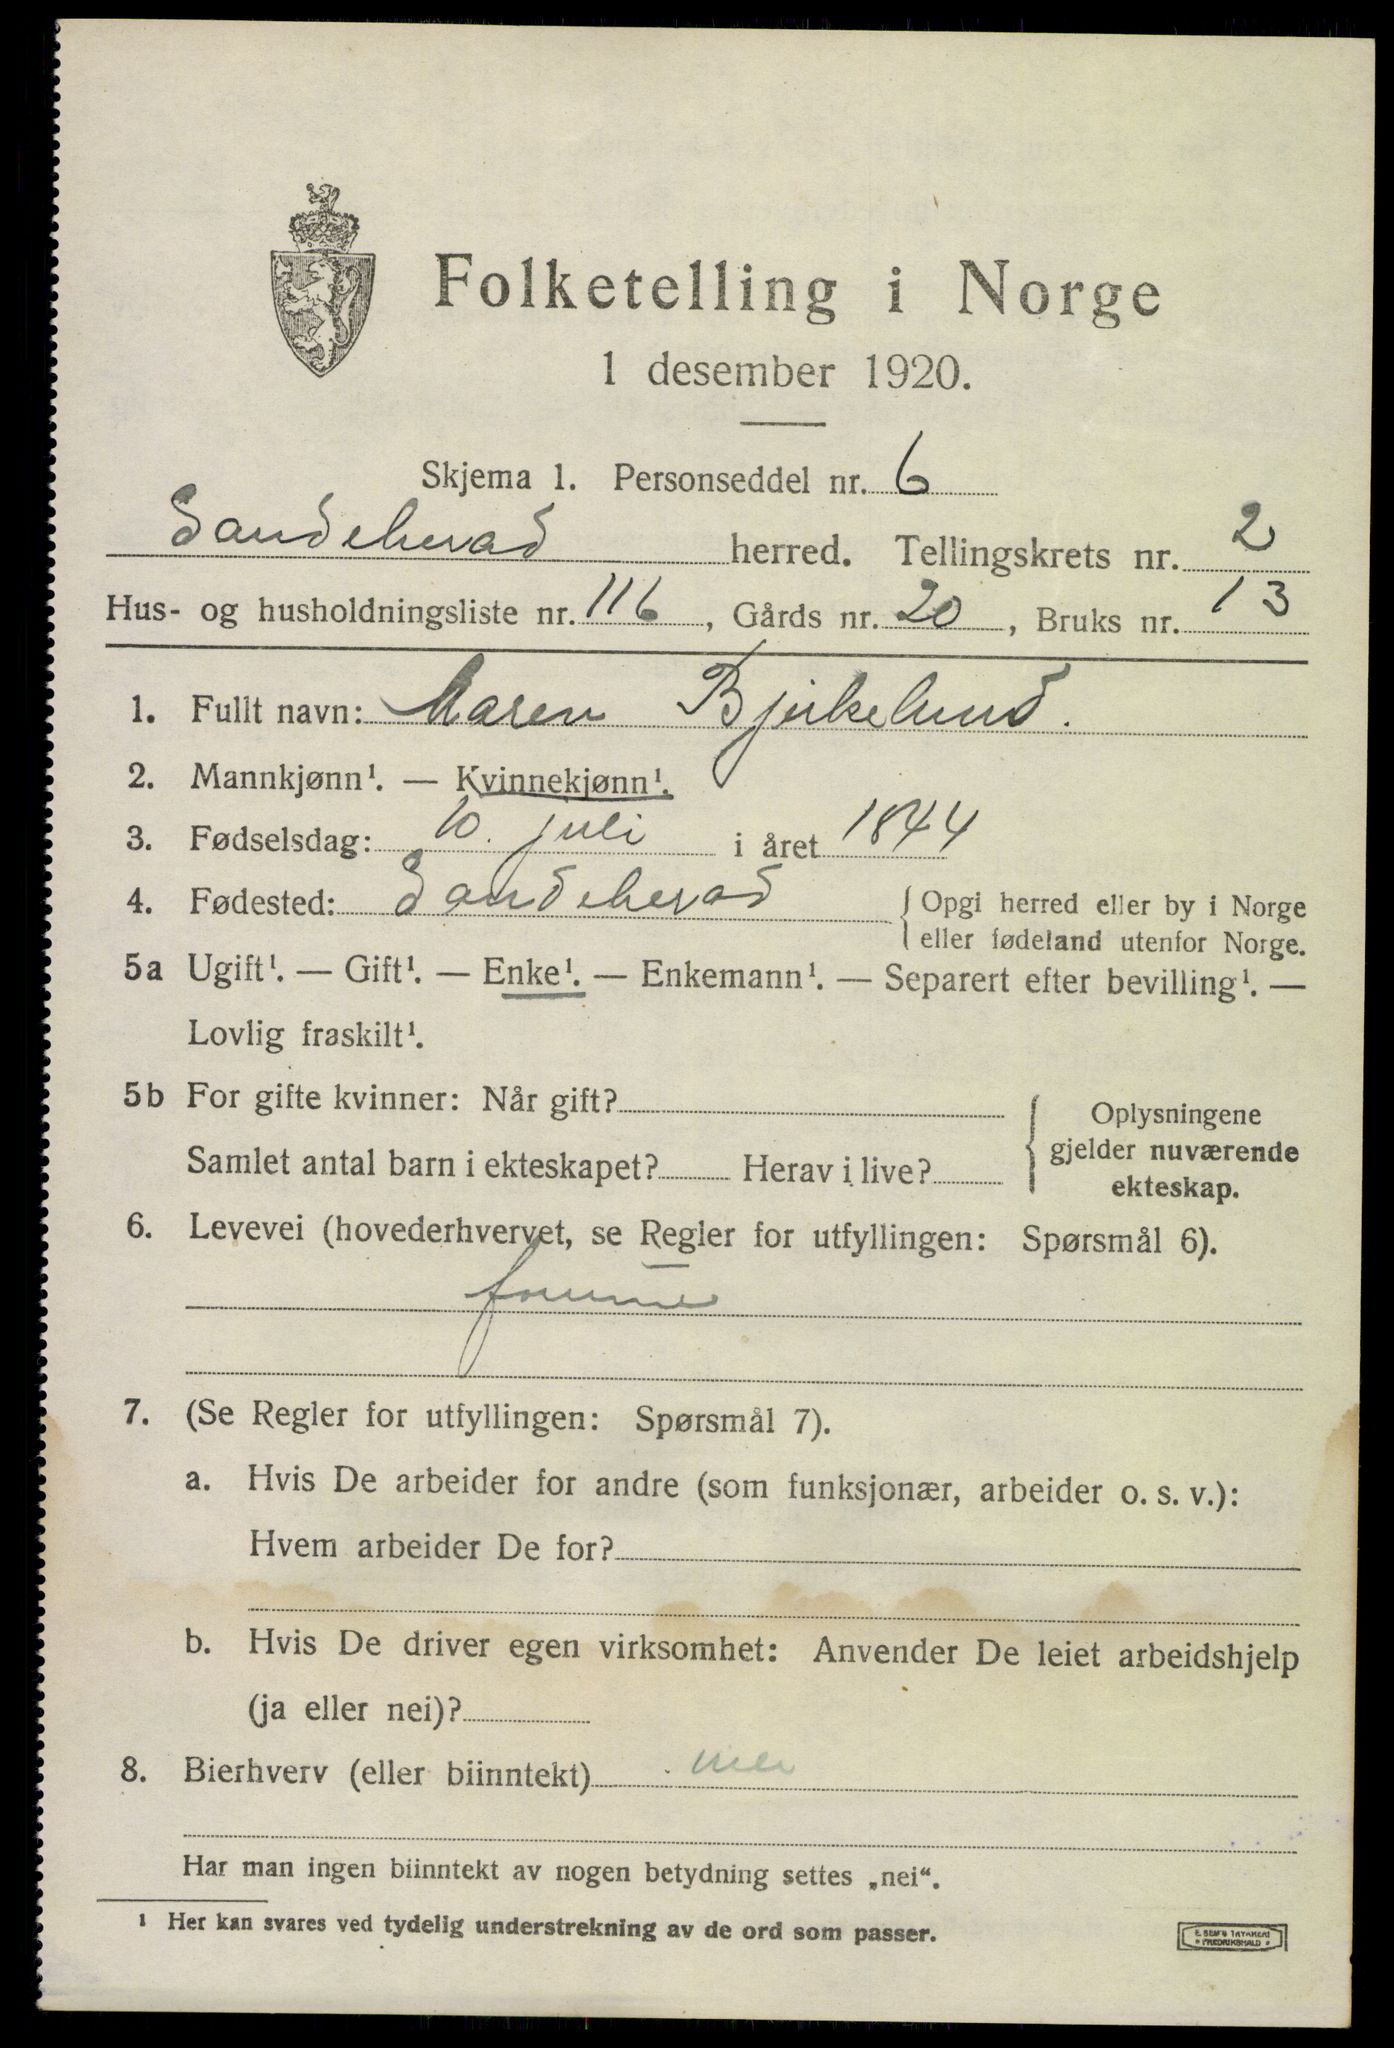 Folketelling i Norge
1 desember 1920.
Skjema 1. Personseddel nr. 6
Sandeherad herred. Tellingskrets nr. 2
Hus- og husholdningsliste nr. 116, Gårds nr. 20, Bruks nr. 13
1. Fullt navn: Maren Bjerkelund.
2. Mannkjønn¹. — Kvinnekjønn¹.
3. Fødselsdag: 10. juli i året 1844
4. Fødested: Sandeherad { Opgi herred eller by i Norge
eller fødeland utenfor Norge.
5a Ugift¹. — Gift¹. — Enke¹. — Enkemann¹. — Separert efter bevilling¹. —
Lovlig fraskilt¹.
5b For gifte kvinner: Når gift? { Oplysningene
gjelder nuværende
ekteskap.
Samlet antal barn i ekteskapet? Herav i live?
6. Levevei (hovederhvervet, se Regler for utfyllingen: Spørsmål 6).
7. (Se Regler for utfyllingen: Spørsmål 7).
a. Hvis De arbeider for andre (som funksjonær, arbeider o. s. v.):
Hvem arbeider De for?
b. Hvis De driver egen virksomhet: Anvender De leiet arbeidshjelp
(ja eller nei)?
8. Bierhverv (eller biinntekt) nei
Har man ingen biinntekt av nogen betydning settes „nei“.
¹ Her kan svares ved tydelig understrekning av de ord som passer.
E. SEM'S TRYKKERI
FREDRIKSHALD